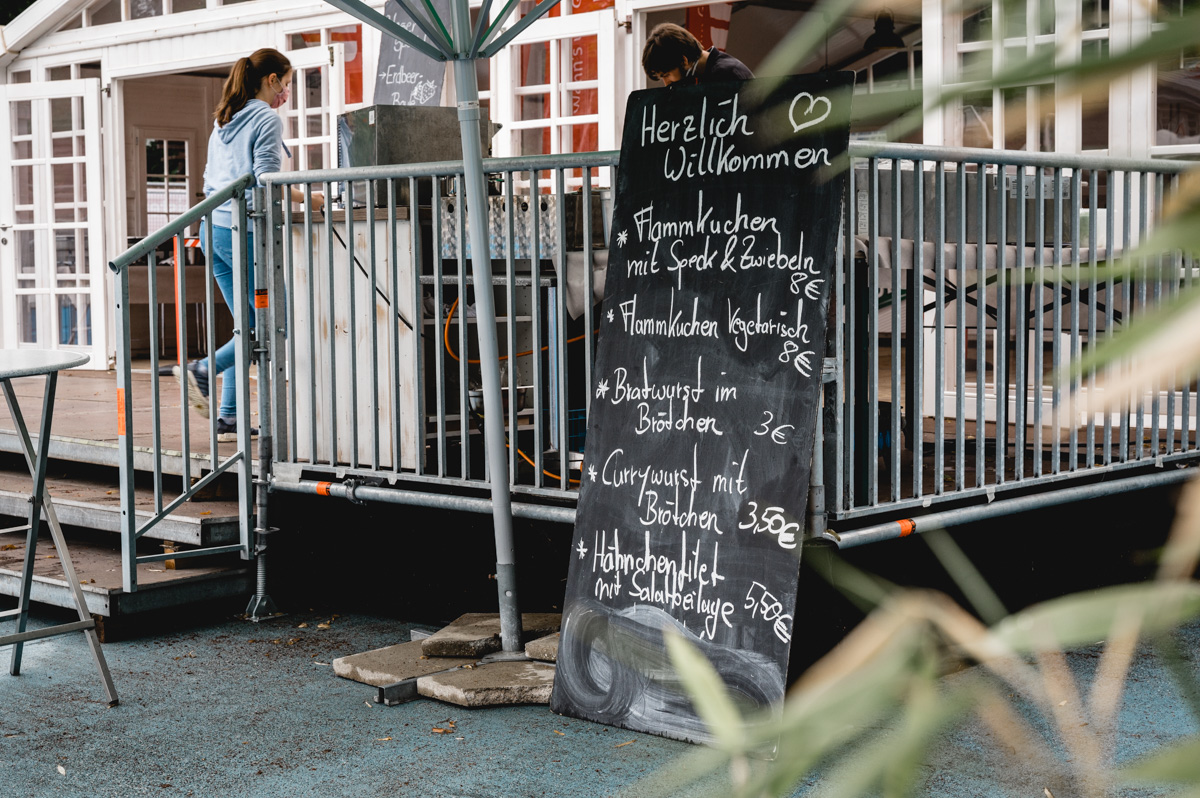 Erdbeer
Herzlich
Willkommen
* Flammkuchen
mit Speck & Zwiebeln
8€
* Flammkuchen Vegetarisch
8€
* Bratwurst im
Brötchen 3€
* Currywurst mit
Brötchen 3,50€
* Hähnchenfilet
mit Salatbeilage 5,50€